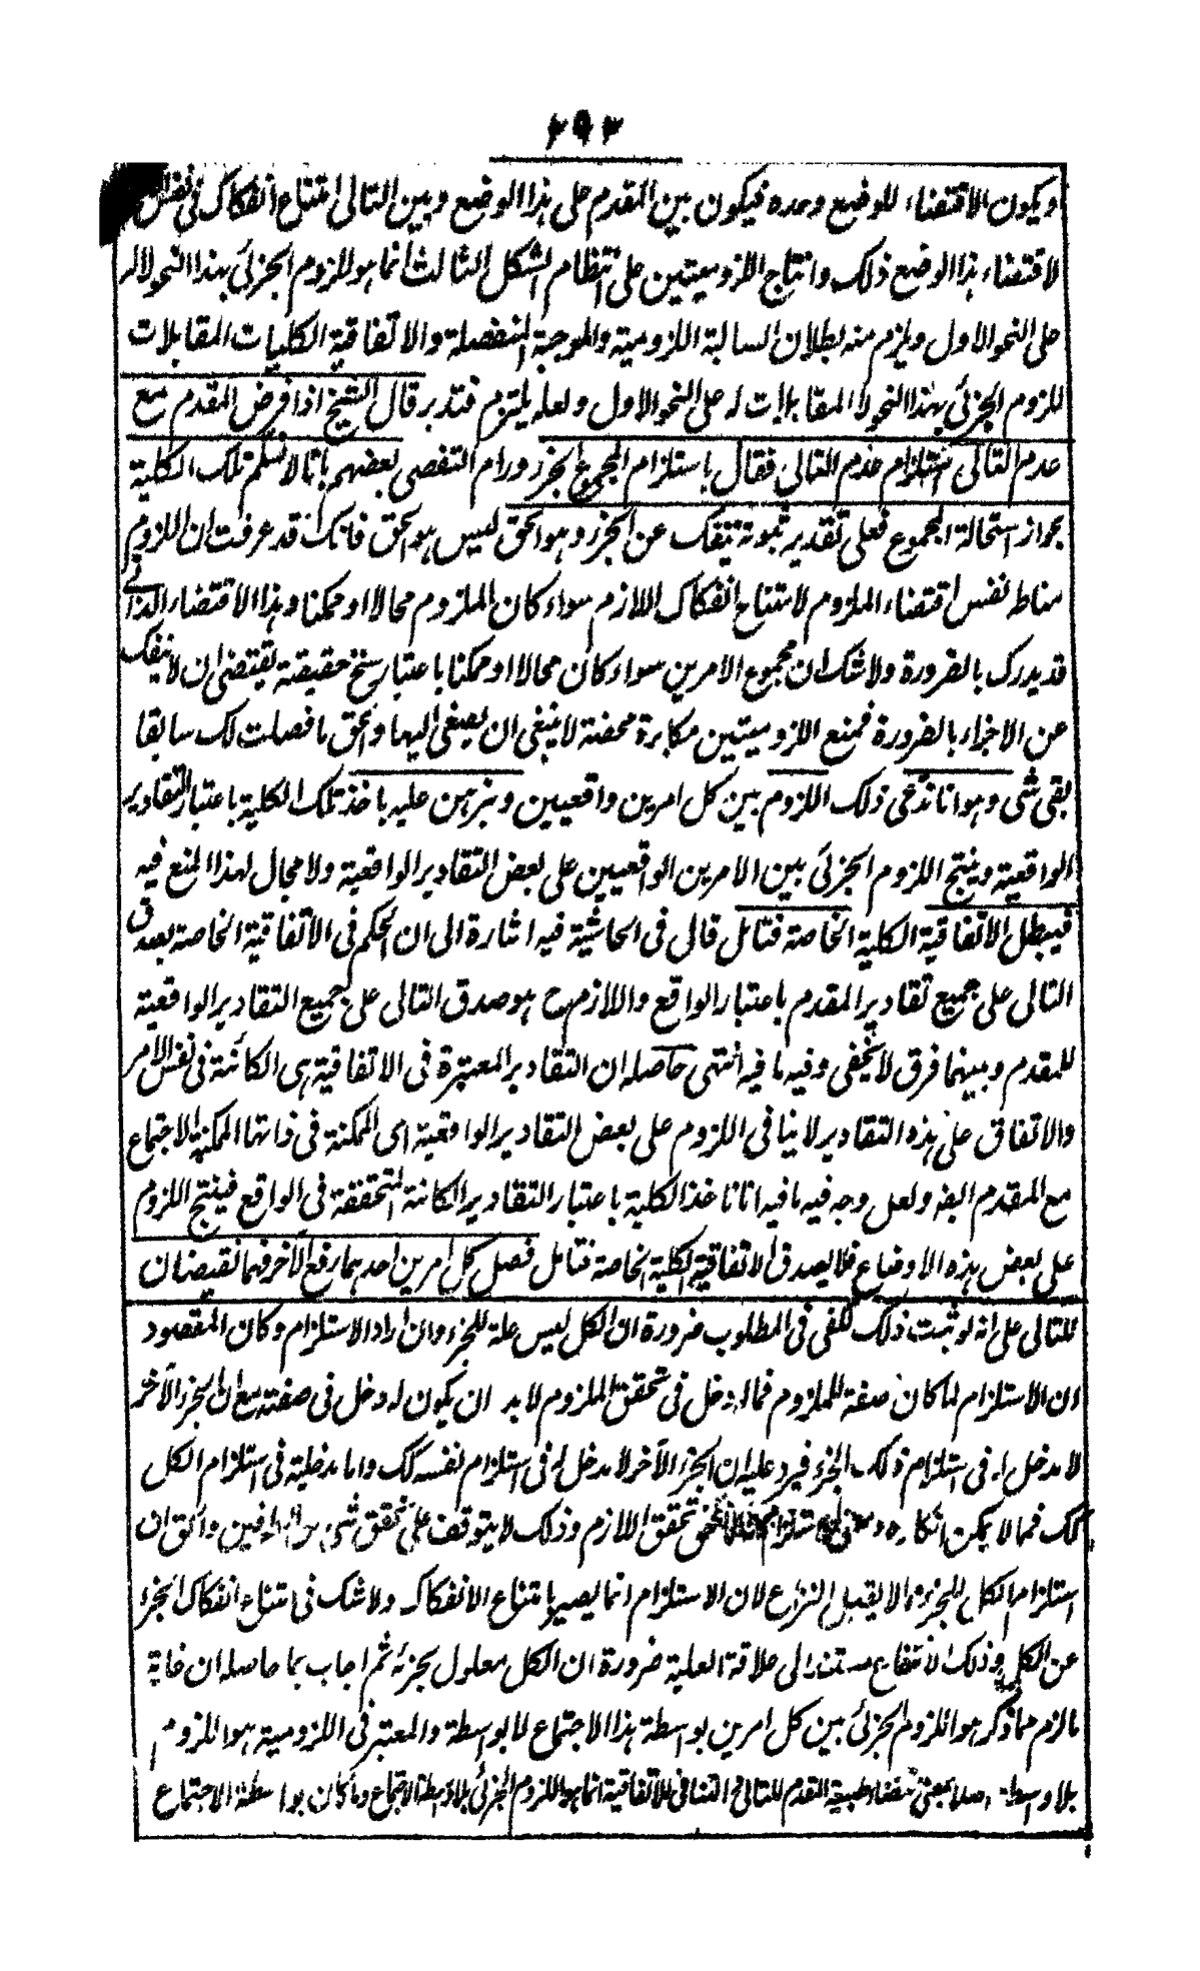 ٢٩٣
او يكون الاقتضاء للوضع وحده فيكون بين المقدم على هذا الوضع وبين التالى امتناع انفكاك فى نفس
لاقتضاء هذا الوضع ذلك وانتاج اللزوميتين على انتظام الشكل الثالث انما هو للزوم الجزئى بهذا النحو لا
على النحو الاول ويلزم منه بطلان السالبة اللزومية والموجبة المنفصلة والاتفاقية الكليات المقابلات
للزوم الجزئى بهذا النحو لا المقابلات له على النحو الاول ولعله يلتزم فتدبر قال الشيخ اذا فرض المقدم مع
عدم التالى استلزام عدم التالى فقال باستلزام المجموع الجزء ورام التفصى بعضهم بانا لا نسلم تلك الكلية
بجواز استحالة المجموع فعلى تقدير ثبوته ينفك عن الجزء وهو الحق ليس هو الحق فانك قد عرفت ان اللزوم
مناط نفس اقتضاء الملزوم لامتناع انفكاك اللازم سواء كان الملزوم محالا او ممكنا وهذا الاقتضاء الذاتى
قد يدرك بالضرورة ولا شك ان مجموع الامرين سواء كان محالا او ممكنا باعتبار سنخ حقيقته يقتضى ان لا ينفك
عن الاجزاء بالضرورة فمنع اللزوميتين مكابرة محضة لا ينبغى ان يصغى اليها والحق ما فصلت لك سابقا
بقى شى وهو انا ندعى ذلك اللزوم بين كل امرين واقعيين ونبرهن عليه باخذ تلك الكلية باعتبار التقادير
الواقعية وينتج اللزوم الجزئى بين الامرين الواقعيين على بعض التقادير الواقعية ولا مجال لهذا المنع فيه
فيبطل الاتفاقية الكلية الخاصة فتامل قال فى الحاشية فيه اشارة الى ان الحكم فى الاتفاقية الخاصة بصدق
التالى على جميع تقادير المقدم باعتبار الواقع واللازم ح هو صدق التالى على جميع التقادير الواقعية
للمقدم وبينهما فرق لا يخفى وفيه ما فيه انتهى حاصله ان التقادير المعتبرة فى الاتفاقية هى الكائنة فى نفس الامر
والاتفاق على هذه التقادير لا ينافى اللزوم على بعض التقادير الواقعية اى الممكنة فى ذاتها الممكنة الاجتماع
مع المقدم البفه ولعل وجه فيه ما فيه انا ناخذ الكلية باعتبار التقادير الكائنة المتحققة فى الواقع فينتج اللزوم
على بعض هذه الاوضاع فلا يصدق الاتفاقية الكلية الخاصة فتامل فصل كل امرين احدهما رفع الآخر فهما نقيضان
للتالى على انه لو ثبت ذلك لكفى فى المطلوب ضرورة ان الكل ليس علة للجزء وان اراد الاستلزام وكان المقصود
ان الاستلزام لما كان صفة للملزوم فماله دخل فى تحقق الملزوم لا بد ان يكون له دخل فى صفته مع ان الجزء الآخر
لا مدخل له فى استلزام ذلك الجزء فيرد عليه ان الجزء الآخر لا مدخل له فى استلزام نفسه كك واما مدخليته فى استلزام الكل
كك فما لا يمكن انكاره تحقق اللازم وذلك لا يتوقف على تحقق شى من الطرفين والحق ان
استلزام الكل للجزء مما لا يقبل النزاع لان الاستلزام انما يصير بامتناع الانفكاك ولا شك فى امتناع انفكاك الجزء
عن الكل وذلك الامتناع مستند الى علاقة العلية ضرورة ان الكل معلول بجزئه ثم اجاب بما حاصله ان غاية
ما لزم مما ذكر هو اللزوم الجزئى بين كل امرين بواسطة هذا الاجتماع لا بواسطة والمعتبر فى اللزومية هو اللزوم
بلا واسطة اصلا بمعنى اقتضاء طبيعة المقدم للتالى التنافى للاتفاقية انما هو اللزوم الجزئى بلا واسطة الاجتماع وما كان بواسطة الاجتماع